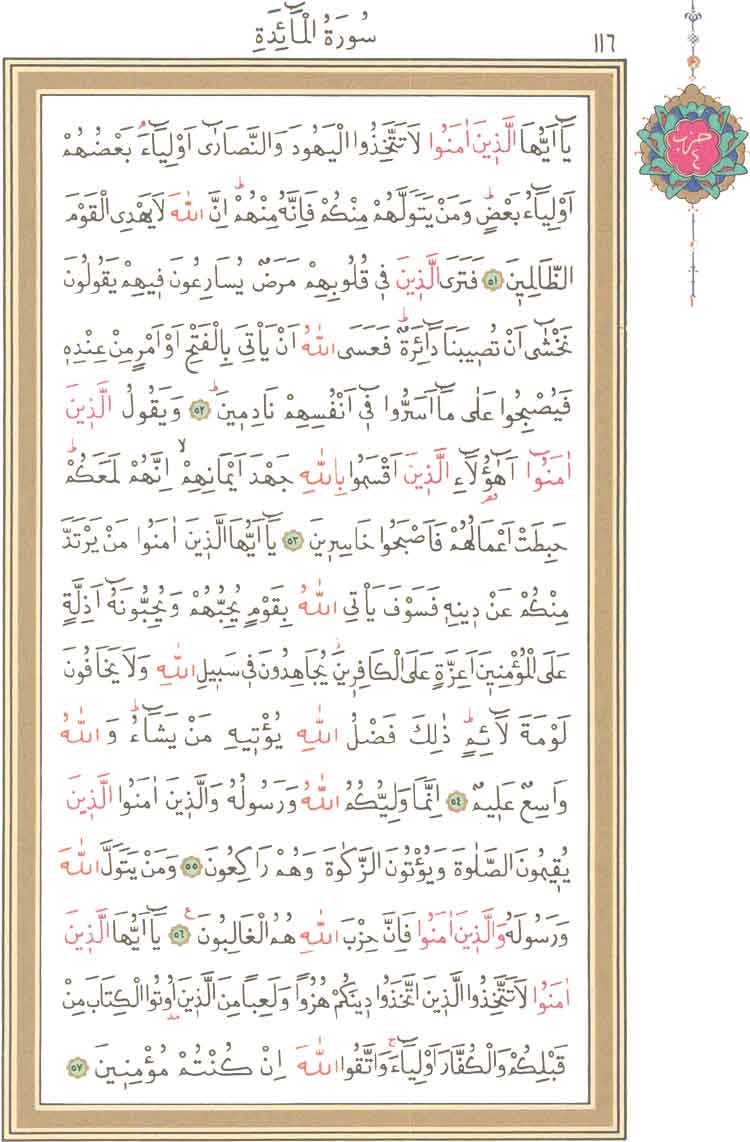 سُورَةُ الْمَٓائِدَةِ
١١٦
حزب
٤
يَٓا اَيُّهَا الَّذٖينَ اٰمَنُوا لَا تَتَّخِذُوا الْيَهُودَ وَالنَّصَارٰٓى اَوْلِيَٓاءَۘ بَعْضُهُمْ
اَوْلِيَٓاءُ بَعْضٍؕ وَمَنْ يَتَوَلَّهُمْ مِنْكُمْ فَاِنَّهُ مِنْهُمْؕ اِنَّ اللّٰهَ لَا يَهْدِى الْقَوْمَ
الظَّالِمٖينَ ٥١ فَتَرَى الَّذٖينَ فٖى قُلُوبِهِمْ مَرَضٌ يُسَارِعُونَ فٖيهِمْ يَقُولُونَ
نَخْشٰٓى اَنْ تُصٖيبَنَا دَٓائِرَةٌؕ فَعَسَى اللّٰهُ اَنْ يَاْتِىَ بِالْفَتْحِ اَوْ اَمْرٍ مِنْ عِنْدِهٖ
فَيُصْبِحُوا عَلٰى مَٓا اَسَرُّوا فٖٓى اَنْفُسِهِمْ نَادِمٖينَؕ ٥٢ وَيَقُولُ الَّذٖينَ
اٰمَنُٓوا اَهٰٓؤُلَٓاءِ الَّذٖينَ اَقْسَمُوا بِاللّٰهِ جَهْدَ اَيْمَانِهِمْۙ اِنَّهُمْ لَمَعَكُمْؕ
حَبِطَتْ اَعْمَالُهُمْ فَاَصْبَحُوا خَاسِرٖينَ ٥٣ يَٓا اَيُّهَا الَّذٖينَ اٰمَنُوا مَنْ يَرْتَدَّ
مِنْكُمْ عَنْ دٖينِهٖ فَسَوْفَ يَاْتِى اللّٰهُ بِقَوْمٍ يُحِبُّهُمْ وَيُحِبُّونَهُٓ اَذِلَّةٍ
عَلَى الْمُؤْمِنٖينَ اَعِزَّةٍ عَلَى الْكَافِرٖينَؗ يُجَاهِدُونَ فٖى سَبٖيلِ اللّٰهِ وَلَا يَخَافُونَ
لَوْمَةَ لَٓائِمٍؕ ذٰلِكَ فَضْلُ اللّٰهِ يُؤْتٖيهِ مَنْ يَشَٓاءُؕ وَاللّٰهُ
وَاسِعٌ عَلٖيمٌ ٥٤ اِنَّمَا وَلِيُّكُمُ اللّٰهُ وَرَسُولُهُ وَالَّذٖينَ اٰمَنُوا الَّذٖينَ
يُقٖيمُونَ الصَّلٰوةَ وَيُؤْتُونَ الزَّكٰوةَ وَهُمْ رَاكِعُونَ ٥٥ وَمَنْ يَتَوَلَّ اللّٰهَ
وَرَسُولَهُ وَالَّذٖينَ اٰمَنُوا فَاِنَّ حِزْبَ اللّٰهِ هُمُ الْغَالِبُونَ ع ٥٦ يَٓا اَيُّهَا الَّذٖينَ
اٰمَنُوا لَا تَتَّخِذُوا الَّذٖينَ اتَّخَذُوا دٖينَكُمْ هُزُوًا وَلَعِبًا مِنَ الَّذٖينَ اُوتُوا الْكِتَابَ مِنْ
قَبْلِكُمْ وَالْكُفَّارَ اَوْلِيَٓاءَۚ وَاتَّقُوا اللّٰهَ اِنْ كُنْتُمْ مُؤْمِنٖينَ ٥٧